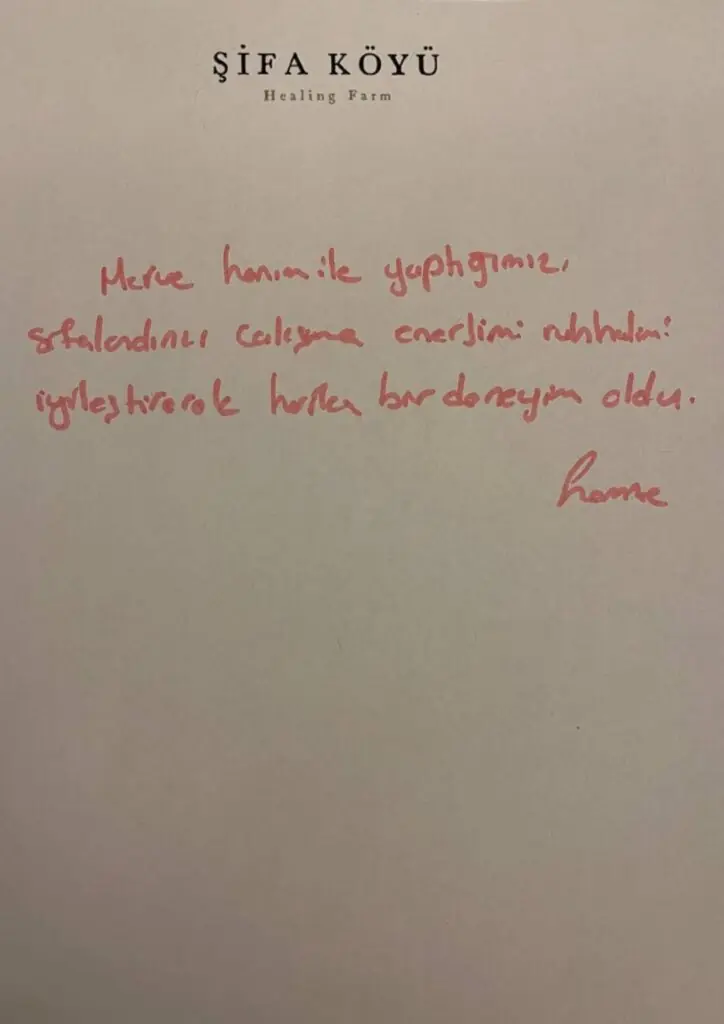 ŞİFA KÖYÜ
Healing Farm
Merve hanım ile yaptığımız,
şifalandırıcı çalışma enerjimi ruhhalimi
iyileştirerek harika bir deneyim oldu.